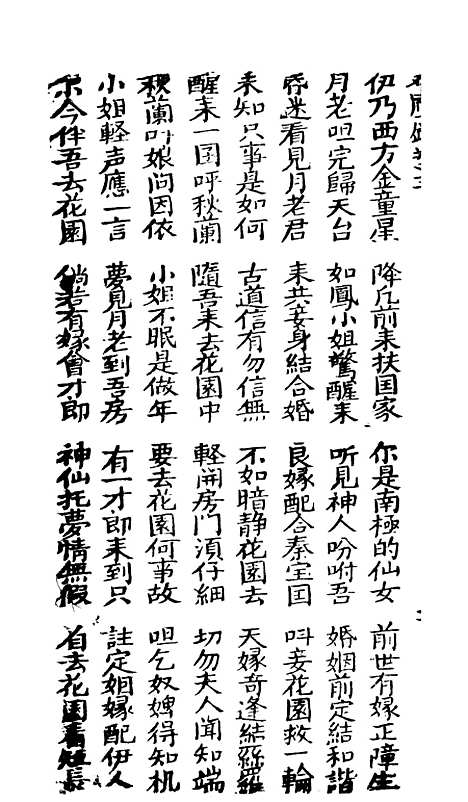 伊乃西方金童星 降凡前耒扶国家 尔是南極的仙女 前世有縁正障生
月老呾完歸天台 如鳳小姐驚醒耒 听見神人吩咐吾 婚姻前定結和諧
昏迷看見月老君 耒共妾身結合婚 良縁配合秦宝囯 叫妾花園救一輪
未知只事是如何 古道信有勿信無 不如暗静花園去 天縁奇逢結絲羅
醒耒一困呼秋蘭 隨吾耒去花園中 軽開房門湏仔細 切勿夫人聞知端
秋蘭叫娘问因依 小姐不眠是做年 要去花園何事故 呾乞奴婢得知机
小姐軽声應一言 夢見月老到吾房 有一才郎耒到只 註定姻縁配伊人
尔今伴吾去花園 倘若有縁會才郎 神仙托夢情無假 着去花園看短長